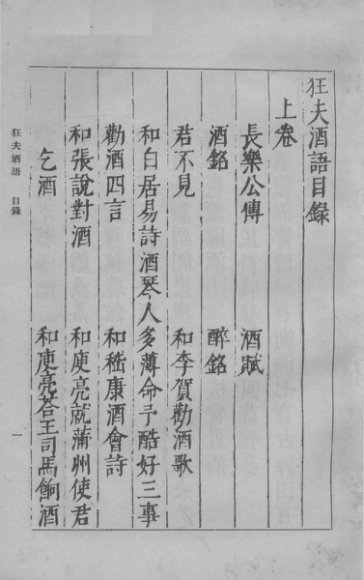 狂夫酒語目錄
上卷
長樂公傳 酒賦
酒銘 醉銘
君不見 和李賀勸酒歌
和白居易詩酒琴人多薄命予酷好三事
勸酒四言 和嵇康酒會詩
和張說對酒 和庾亮就蒲州使君
乞酒 和庾亮荅王司馬餉酒
狂夫酒語 目錄 一